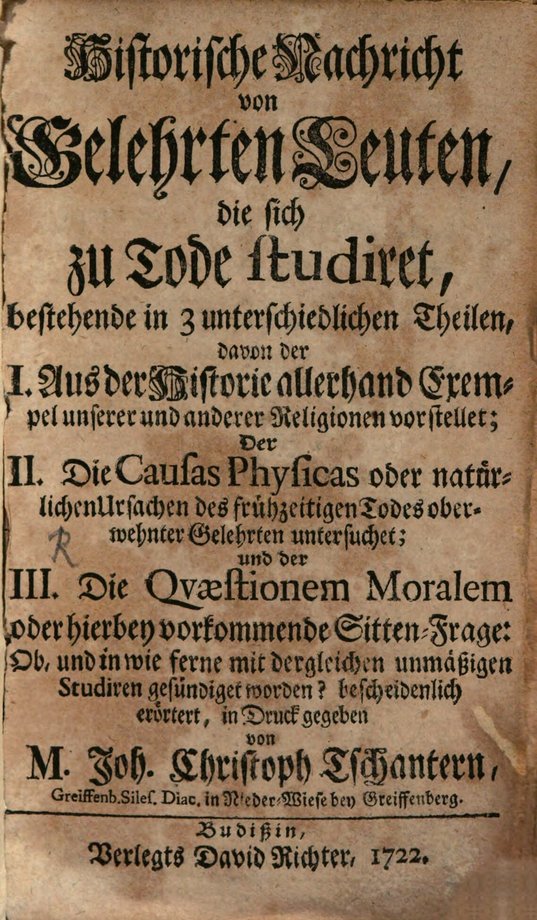 Historische Nachricht
von
Gelehrten Leuten,
die sich
zu Tode studiret,
bestehende in 3 unterschiedlichen Theilen,
davon der
I. Aus der Historie allerhand Exem-
pel unserer und anderer Religionen vorstellet;
Der
II. Die Causas Physicas oder natür-
lichen Ursachen des frühzeitigen Todes ober-
wehnter Gelehrten untersuchet;
und der
III. Die Qvæstionem Moralem
oder hierbey vorkommende Sitten-Frage:
Ob, und in wie ferne mit dergleichen unmäßigen
Studiren gesündiget worden? bescheidenlich
erörtert, in Druck gegeben
von
M. Joh. Christoph Tschantern,
Greiffenb. Siles. Diac. in Nieder-Wiese bey Greiffenberg.
Budißin,
Verlegts David Richter, 1722.
R